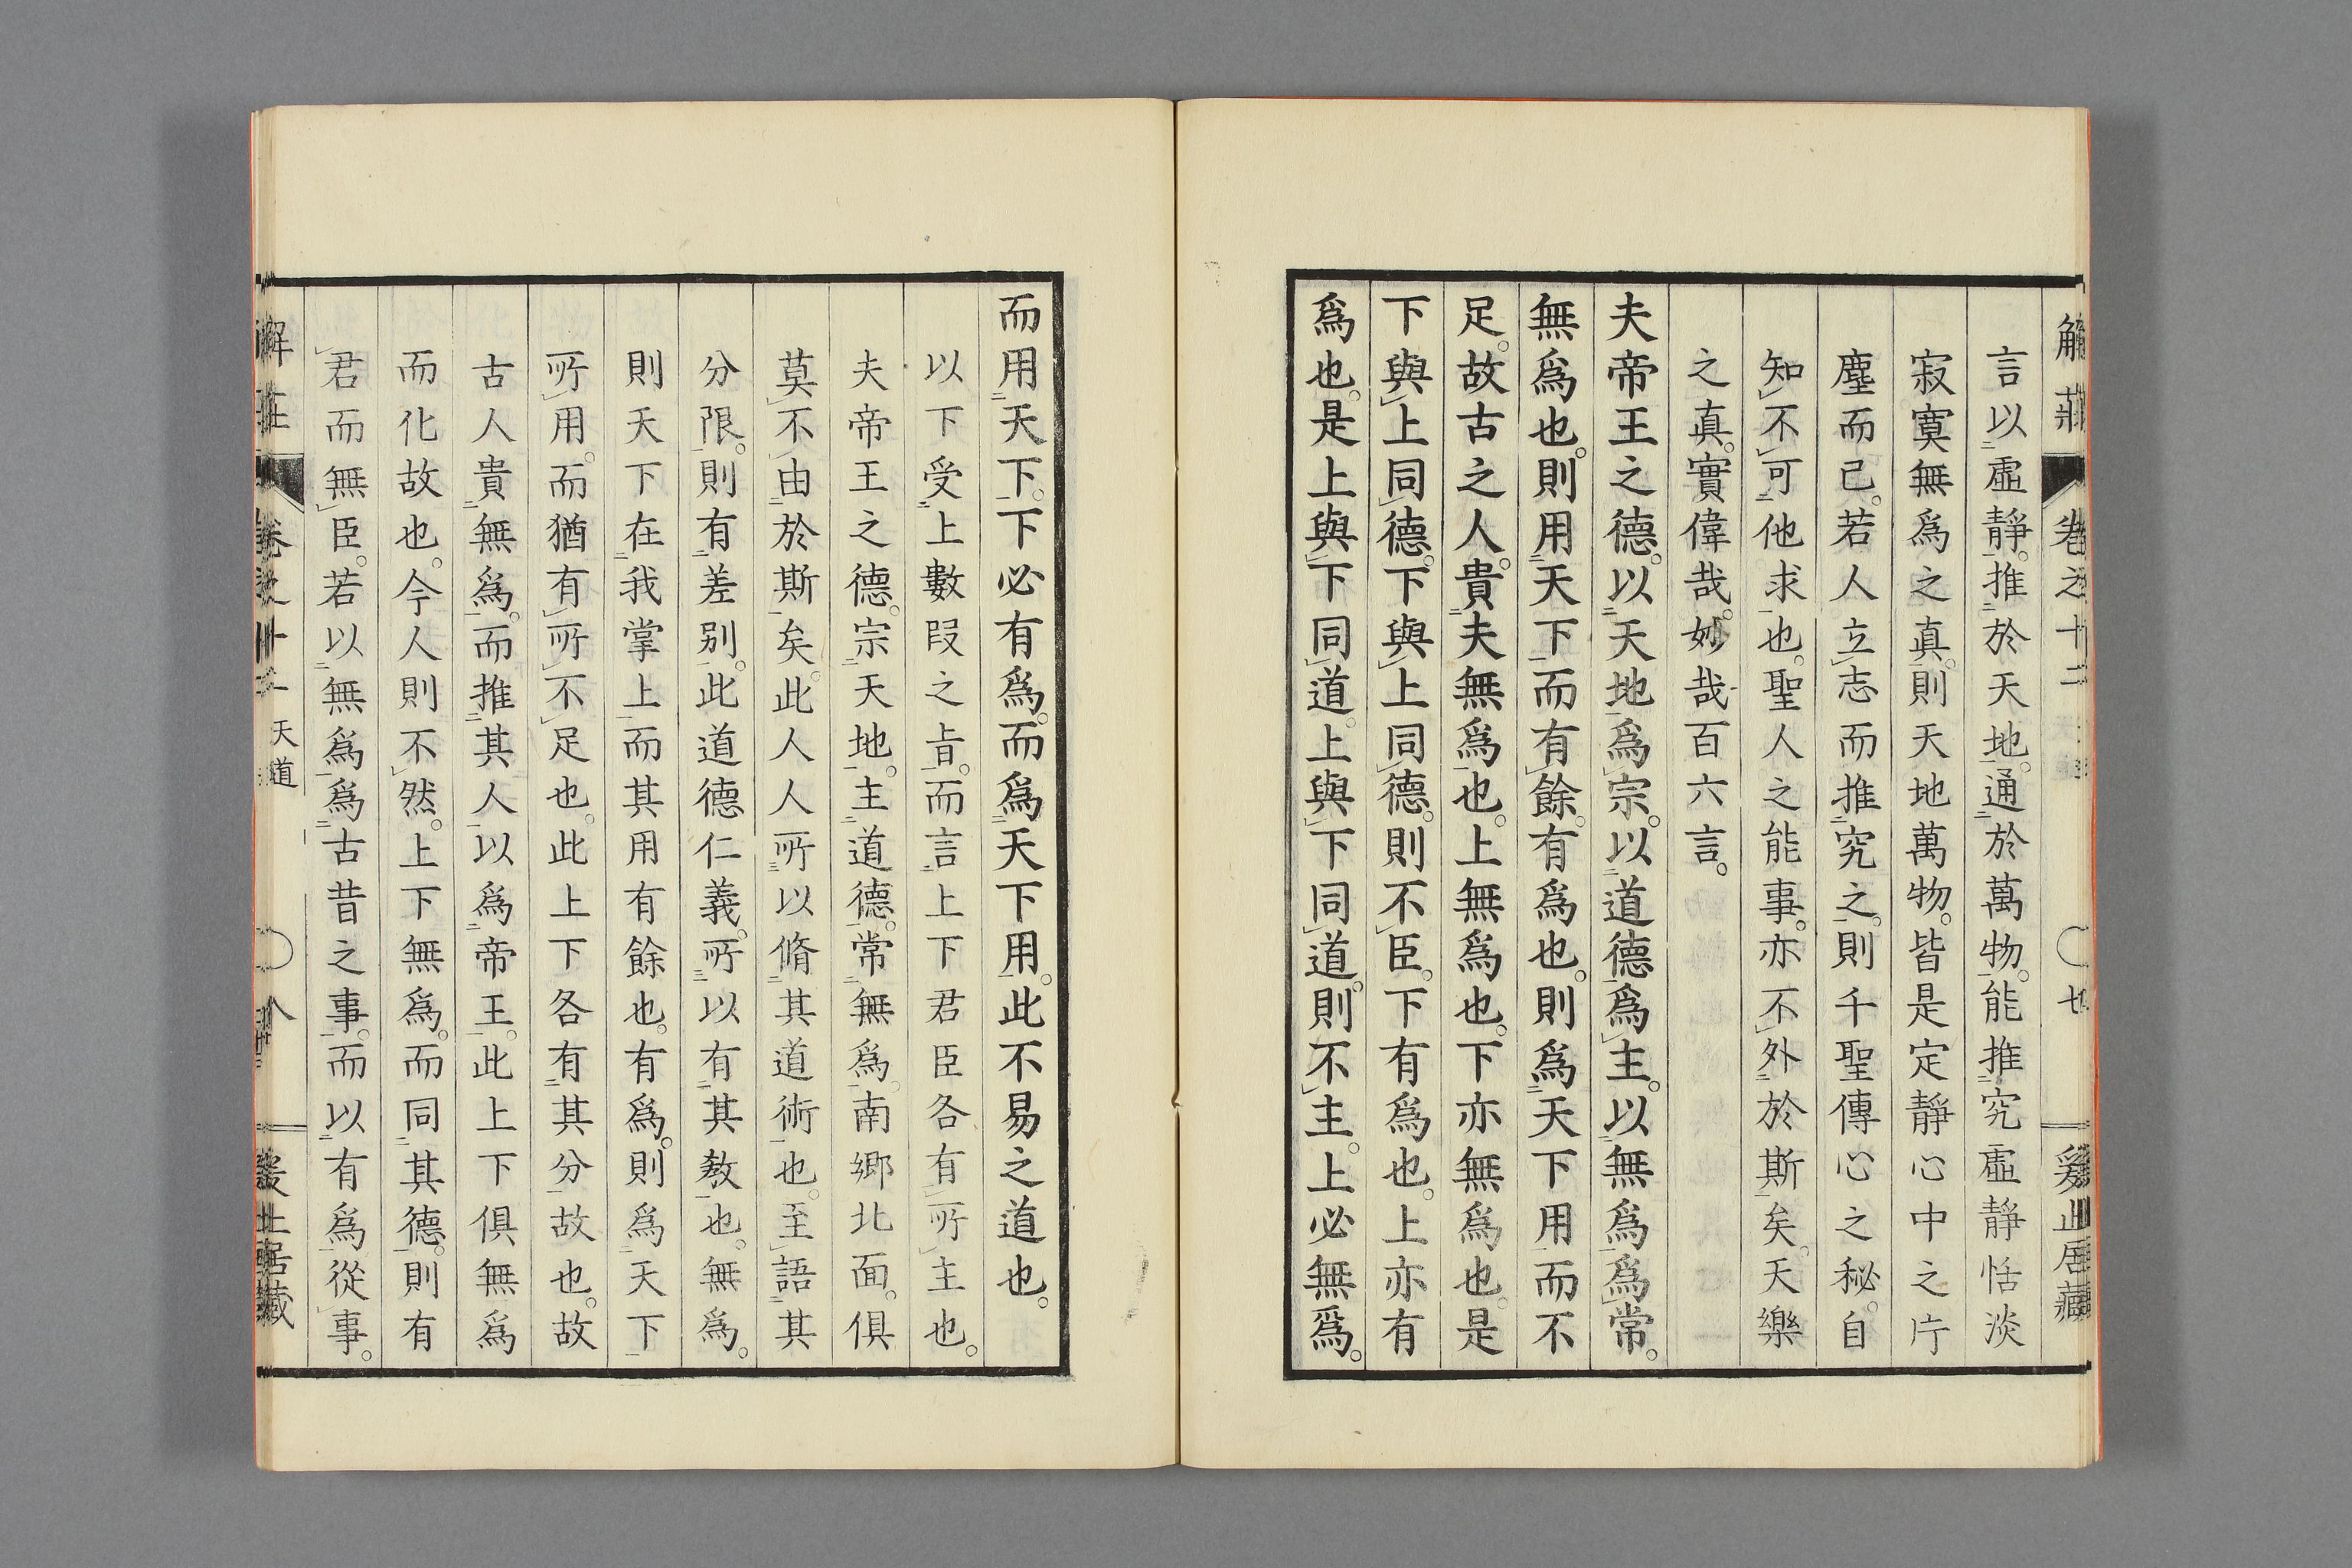 解莊 卷之十二 〇七 雞止居藏
言以虛靜。推於天地。通於萬物。能推究虛靜恬淡
寂寞無爲之真。則天地萬物。皆是定靜心中之片
塵而已。若人立志而推究之。則千聖傳心之秘。自
知不可他求也。聖人之能事。亦不外於斯矣。天樂
之真。實偉哉。妙哉百六言。
夫帝王之德。以天地爲宗。以道德爲主。以無爲爲常。
無爲也。則用天下而有餘。有爲也。則爲天下用而不
足。故古之人。貴夫無爲也。上無爲也。下亦無爲也。是
下與上同德。下與上同德。則不臣。下有爲也。上亦有
爲也。是上與下同道。上與下同道。則不主。上必無爲。
而用天下。下必有爲。而爲天下用。此不易之道也。
以下受上數段之旨。而言上下君臣各有所主也。
夫帝王之德。宗天地。主道德。常無爲。南鄉北面。俱
莫不由於斯矣。此人人所以脩其道術也。至語其
分限。則有差別。此道德仁義。所以有其敎也。無爲。
則天下在我掌上而其用有餘也。有爲。則爲天下
所用。而猶有所不足也。此上下各有其分故也。故
古人貴無爲。而推其人以爲帝王。此上下俱無爲
而化故也。今人則不然。上下無爲。而同其德。則有
君而無臣。若以無爲爲古昔之事。而以有爲從事。
解莊 卷之十二 天道 〇八